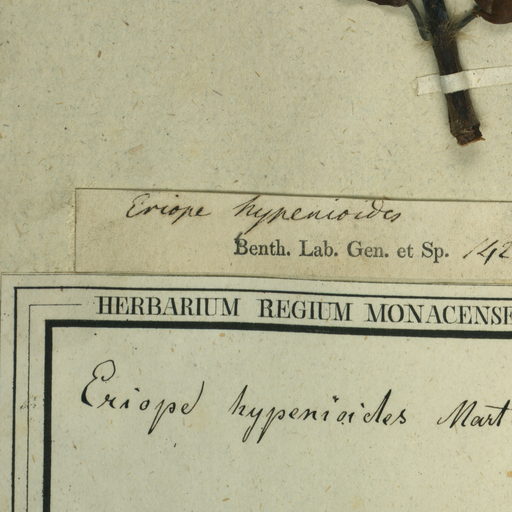 Eriope hypenioides
Benth. Lab. Gen. et Sp. 142
HERBARIUM REGIUM MONACENSE
Eriope hypenioides Mart